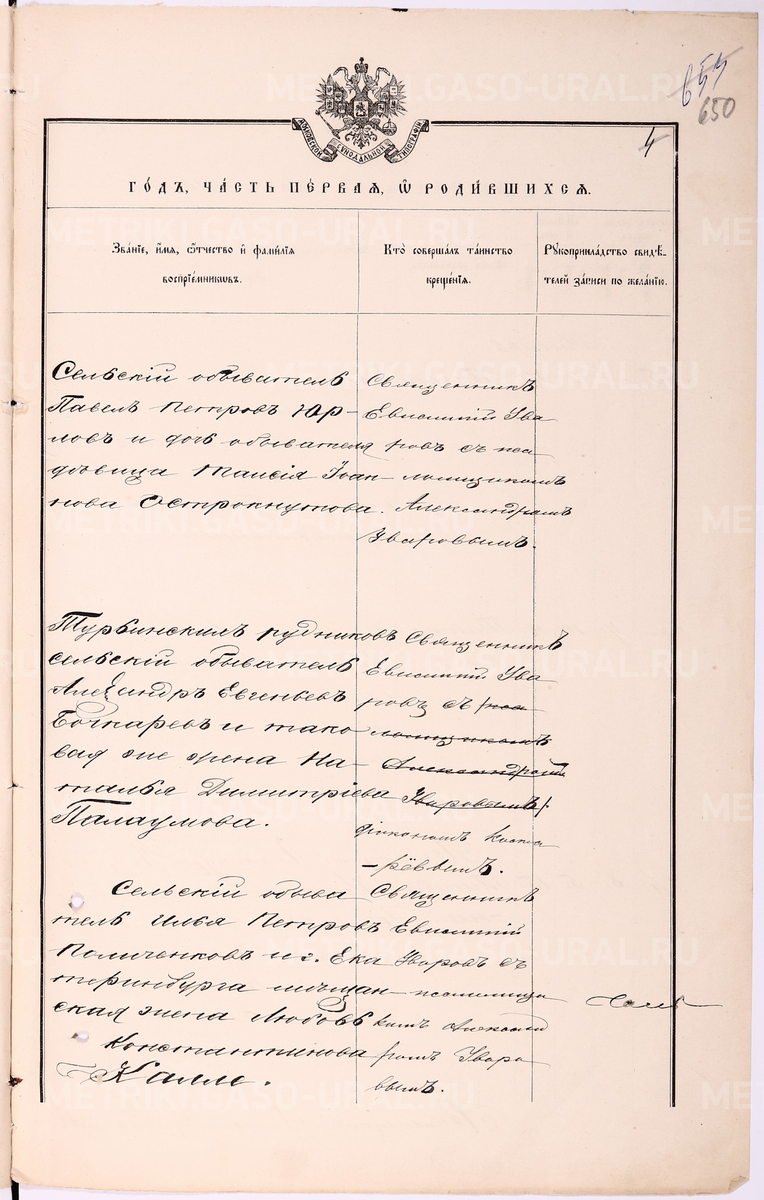 655
650
4
МОСКОВСКОЙ СѴНОДАЛЬНОЙ ТИПОГРАФІИ
ГО́ДЪ, ЧА́СТЬ ПЕ́РВАЯ, Ѡ҆ РОДИ́ВШИХСЯ.
Зва́нїе, и҆́мя, ѻ҆́тчество и҆ фами́лїя
воспрїе́мникѡвъ.
Кто̀ соверша́лъ та́инство
креще́нїя.
Рꙋкоприкла́дство свидѣ́-
телей за́писи по жела́нїю.
Сельскій обыватель
Павелъ Петровъ Юр-
ловъ и дочь обывателя
дѣвица Таисія Іоан-
нова Острокнутова.
Священникъ
Евѳимій Ува
ровъ съ пса
ломщикомъ
Александромъ
Уваровымъ.
Турьинскихъ рудниковъ
сельскій обыватель
Александръ Евгеньевъ
Бочкаревъ и тако
вая же жена На-
талья Димитріева
Палаумова.
Священникъ
Евѳимій Ува
ровъ съ /пса
ломщикомъ
Александромъ
Уваровымъ/.
діакономъ
-рёвымъ.
Сельскій обыва
тель Илья Петровъ
и г. Ека
теринбурга мѣщан-
ская жена Любовь
Константинова
Калл.
Священникъ
Евѳимій
Уваровъ съ
псаломщи
комъ Алексан
ромъ Ува
вымъ.